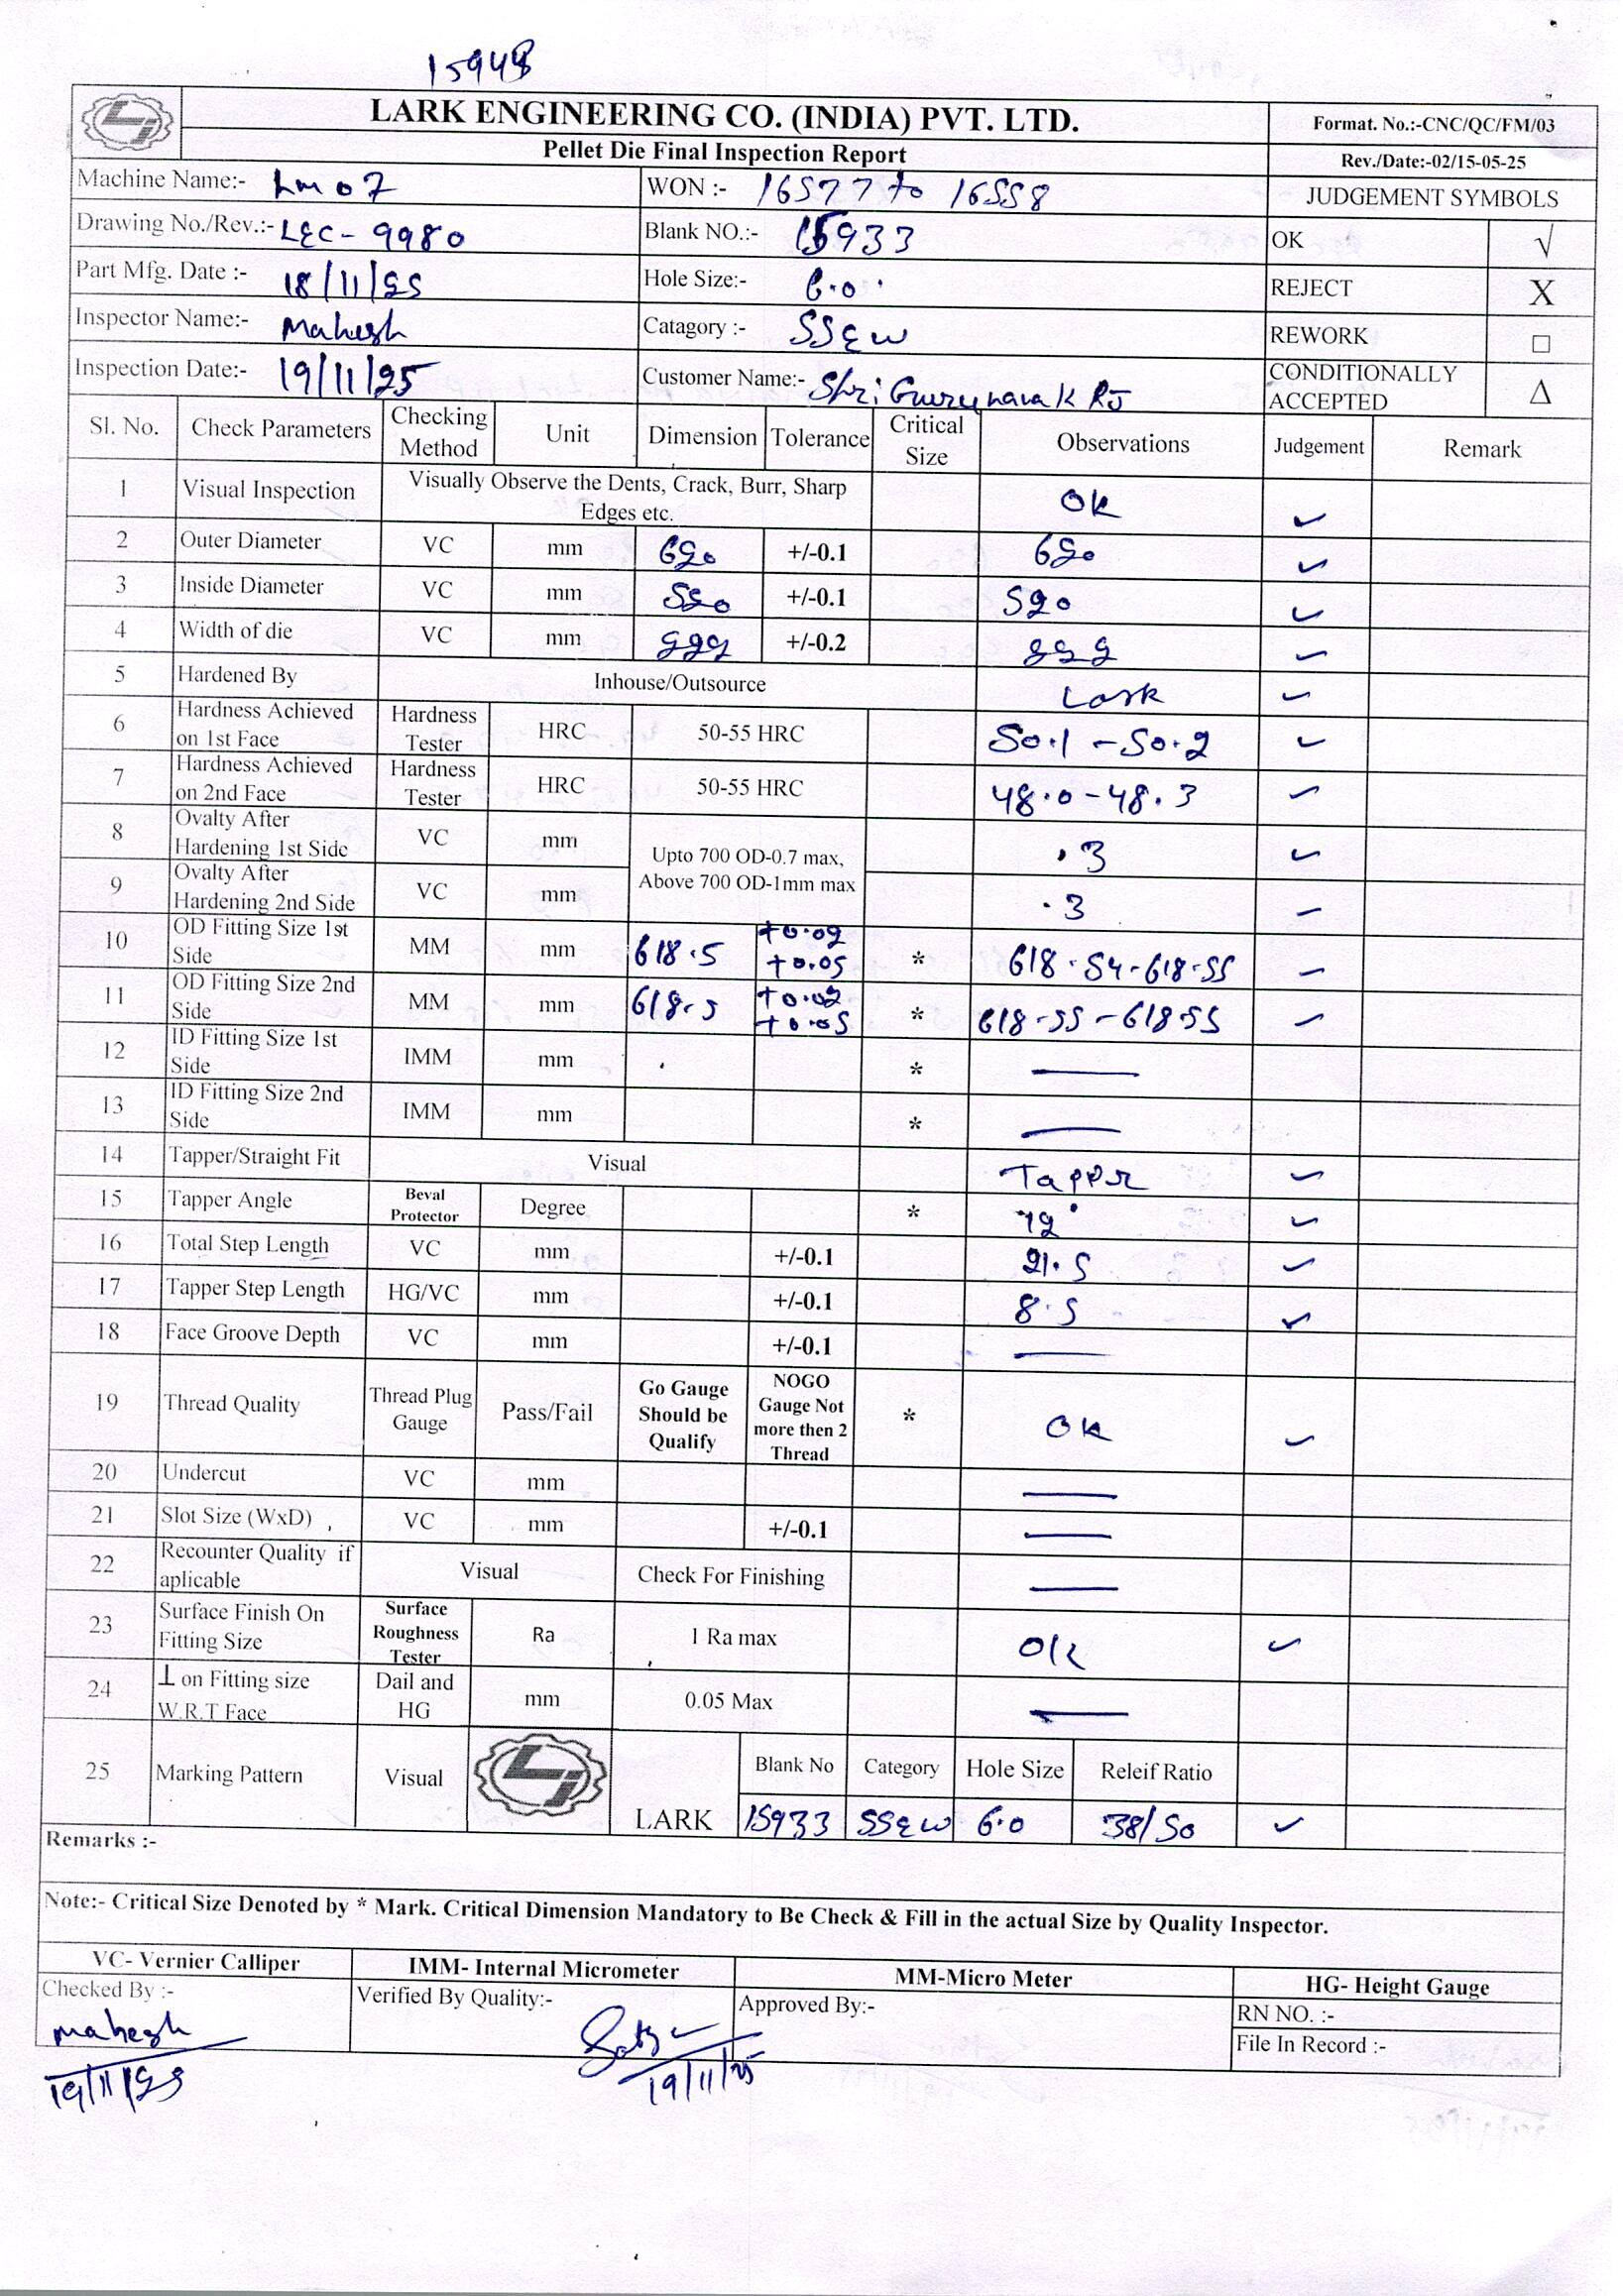 15948
LARK ENGINEERING CO. (INDIA) PVT. LTD.
Format. No.:-CNC/QC/FM/03
Pellet Die Final Inspection Report
Rev./Date:-02/15-05-25
Machine Name:- Lm07 WON :- 16577 to 16558 JUDGEMENT SYMBOLS
Drawing No./Rev.:- LEC-9980 Blank NO.:- 15933 OK √
Part Mfg. Date :- 18/11/25 Hole Size:- 6.0 REJECT X
Inspector Name:- Mahesh Catagory :- SSEW REWORK □
Inspection Date:- 19/11/25 Customer Name:- Shri Gurunanak RJ CONDITIONALLY ACCEPTED Δ
Sl. No. Check Parameters Checking Method Unit Dimension Tolerance Critical Size Observations Judgement Remark
1 Visual Inspection Visually Observe the Dents, Crack, Burr, Sharp Edges etc. OK ✓
2 Outer Diameter VC mm 620 +/-0.1 620 ✓
3 Inside Diameter VC mm 520 +/-0.1 520 ✓
4 Width of die VC mm 222 +/-0.2 222 ✓
5 Hardened By Inhouse/Outsource Lark ✓
6 Hardness Achieved on 1st Face Hardness Tester HRC 50-55 HRC 50.1 - 50.2 ✓
7 Hardness Achieved on 2nd Face Hardness Tester HRC 50-55 HRC 48.0 - 48.3 ✓
8 Ovalty After Hardening 1st Side VC mm Upto 700 OD-0.7 max, Above 700 OD-1mm max .3 ✓
9 Ovalty After Hardening 2nd Side VC mm .3 ✓
10 OD Fitting Size 1st Side MM mm 618.5 +0.02 +0.05 * 618.54-618.55 ✓
11 OD Fitting Size 2nd Side MM mm 618.5 +0.02 +0.05 * 618.55-618.55 ✓
12 ID Fitting Size 1st Side IMM mm * —
13 ID Fitting Size 2nd Side IMM mm * —
14 Tapper/Straight Fit Visual Tapper ✓
15 Tapper Angle Beval Protector Degree * 12° ✓
16 Total Step Length VC mm +/-0.1 21.5 ✓
17 Tapper Step Length HG/VC mm +/-0.1 8.5 ✓
18 Face Groove Depth VC mm +/-0.1 —
19 Thread Quality Thread Plug Gauge Pass/Fail Go Gauge Should be Qualify NOGO Gauge Not more then 2 Thread * OK ✓
20 Undercut VC mm —
21 Slot Size (WxD) VC mm +/-0.1 —
22 Recounter Quality if aplicable Visual Check For Finishing —
23 Surface Finish On Fitting Size Surface Roughness Tester Ra 1 Ra max OK ✓
24 ⊥ on Fitting size W.R.T Face Dail and HG mm 0.05 Max —
25 Marking Pattern Visual LARK Blank No Category Hole Size Releif Ratio
15933 SSEW 6.0 38/50 ✓
Remarks :-
Note:- Critical Size Denoted by * Mark. Critical Dimension Mandatory to Be Check & Fill in the actual Size by Quality Inspector.
VC- Vernier Calliper IMM- Internal Micrometer MM-Micro Meter HG- Height Gauge
Checked By :- Verified By Quality:- Approved By:- RN NO. :-
Mahesh File In Record :-
19/11/25 19/11/25